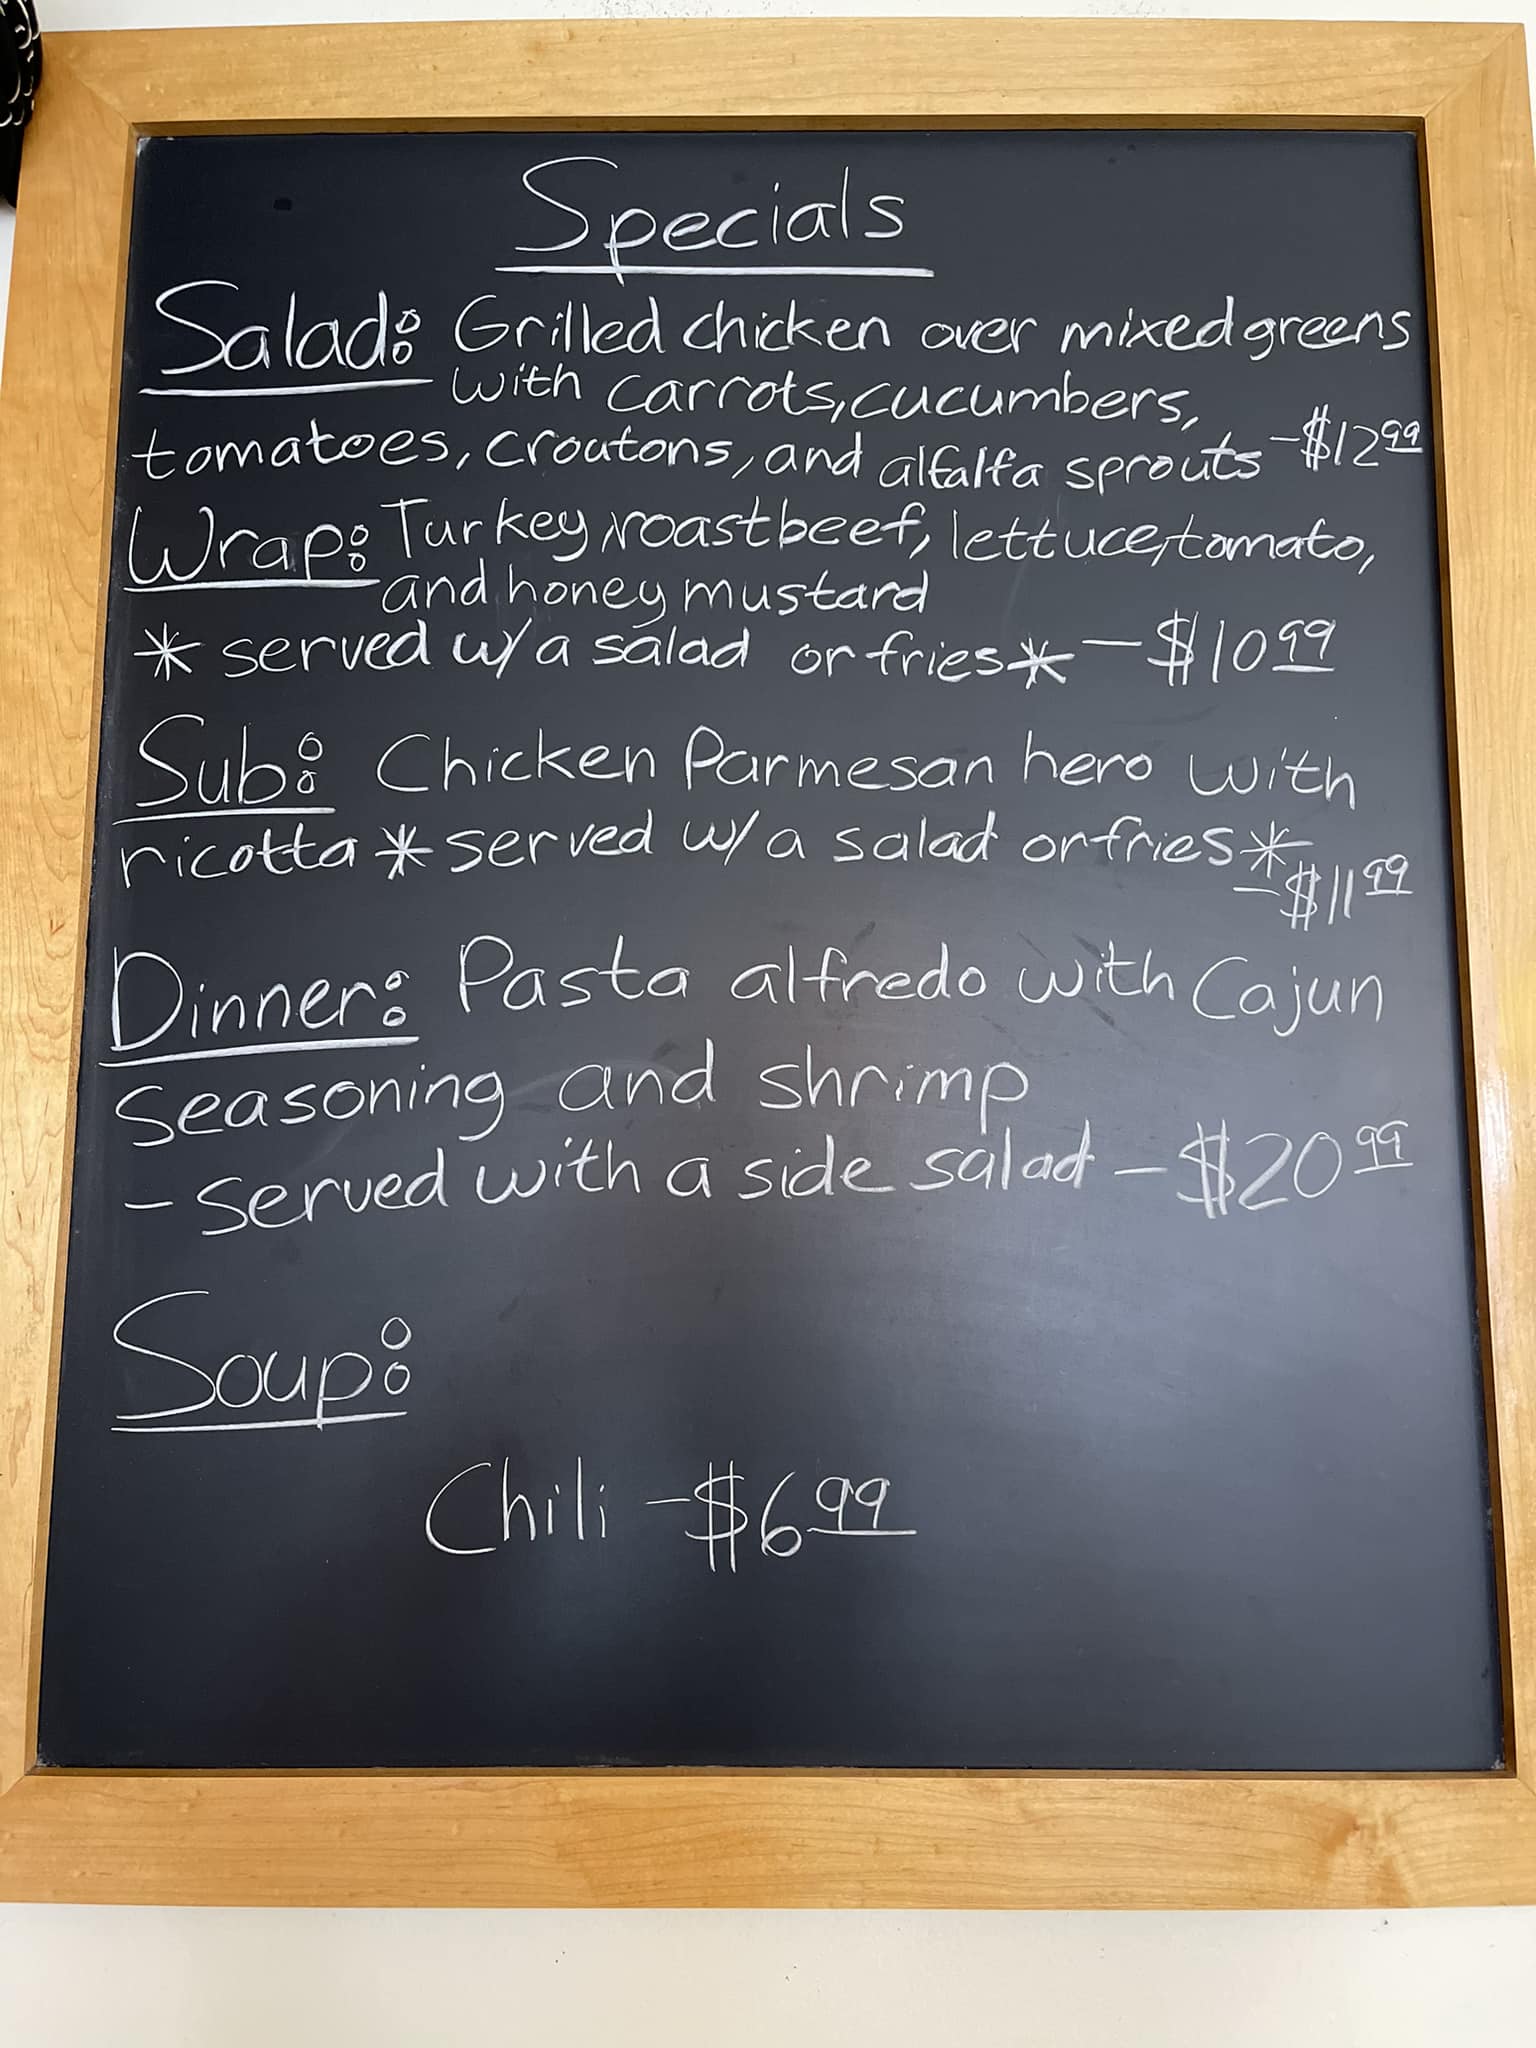 Specials
Salad: Grilled chicken over mixed greens
with carrots, cucumbers,
tomatoes, croutons, and alfalfa sprouts - $12 99
Wrap: Turkey, roast beef, lettuce, tomato,
and honey mustard
* served w/ a salad or fries * - $10 99
Sub: Chicken Parmesan hero with
ricotta * served w/ a salad or fries *
- $11 99
Dinner: Pasta alfredo with Cajun
seasoning and shrimp
- served with a side salad - $20 99
Soup:
Chili - $6 99